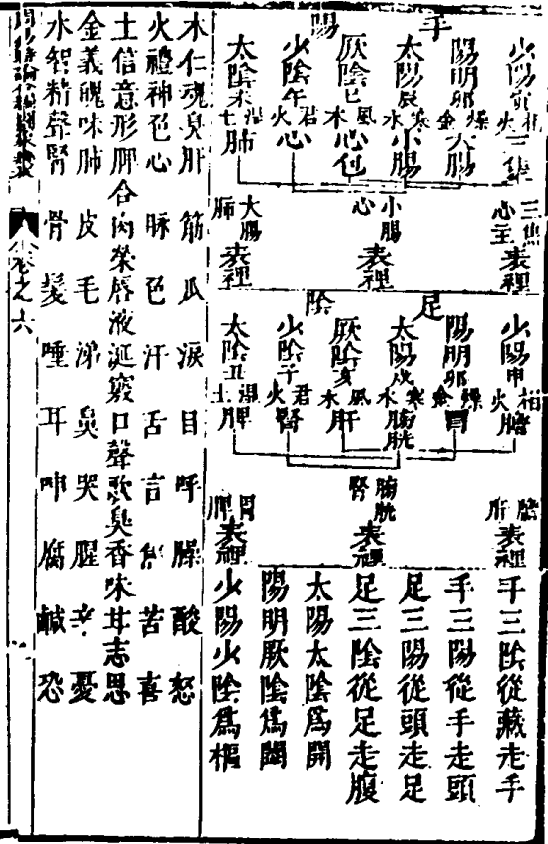 手
陽
少陽寅 相火 三焦
陽明卯 燥金 大腸
太陽辰 寒水 小腸
厥陰巳 風木 心包
少陰午 君火 心
太陰未 濕土 肺
三焦 心主 表裡
小腸 心 表裡
大腸 肺 表裡
足
陰
少陽申 相火 膽
陽明卯 燥金 胃
太陽戌 寒水 膀胱
厥陰亥 風木 肝
少陰子 君火 腎
太陰丑 濕土 脾
膽 肝 表裡
膀胱 腎 表裡
胃 脾 表裡
手三陰從藏走手
手三陽從手走頭
足三陽從頭走足
足三陰從足走腹
太陽太陰為開
陽明厥陰為闔
少陽少陰為樞
木仁魂臭肝 筋 爪 淚 目 呼 臊 酸 怒
火禮神色心 脈 色 汗 舌 言 焦 苦 喜
土信意形脾合肉榮唇液涎竅口聲歌臭香味甘志思
金義魄味肺 皮 毛 涕 鼻 哭 腥 辛 憂
水智精聲腎 骨 髮 唾 耳 呻 腐 鹹 恐
卷之六